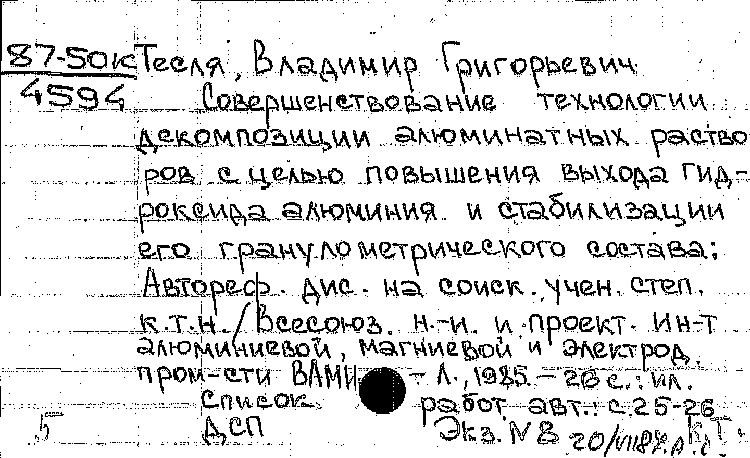 87-50к Тесля, Владимир Григорьевич
4594 Совершенствование технологии
декомпозиции алюминатных раство
ров с целью повышения выхода гид-
роксида алюминия и стабилизации
его гранулометрического состава:
Автореф. дис. на соиск. учен. степ.
к.т.н. / Всесоюз. н.-и. и проект. ин-т
алюминиевой, магниевой и электрод.
пром-сти ВАМИ - Л., 1985. - 26 с.: ил.
Список работ авт.: с. 25-26
5 ДСП Экз. N 8